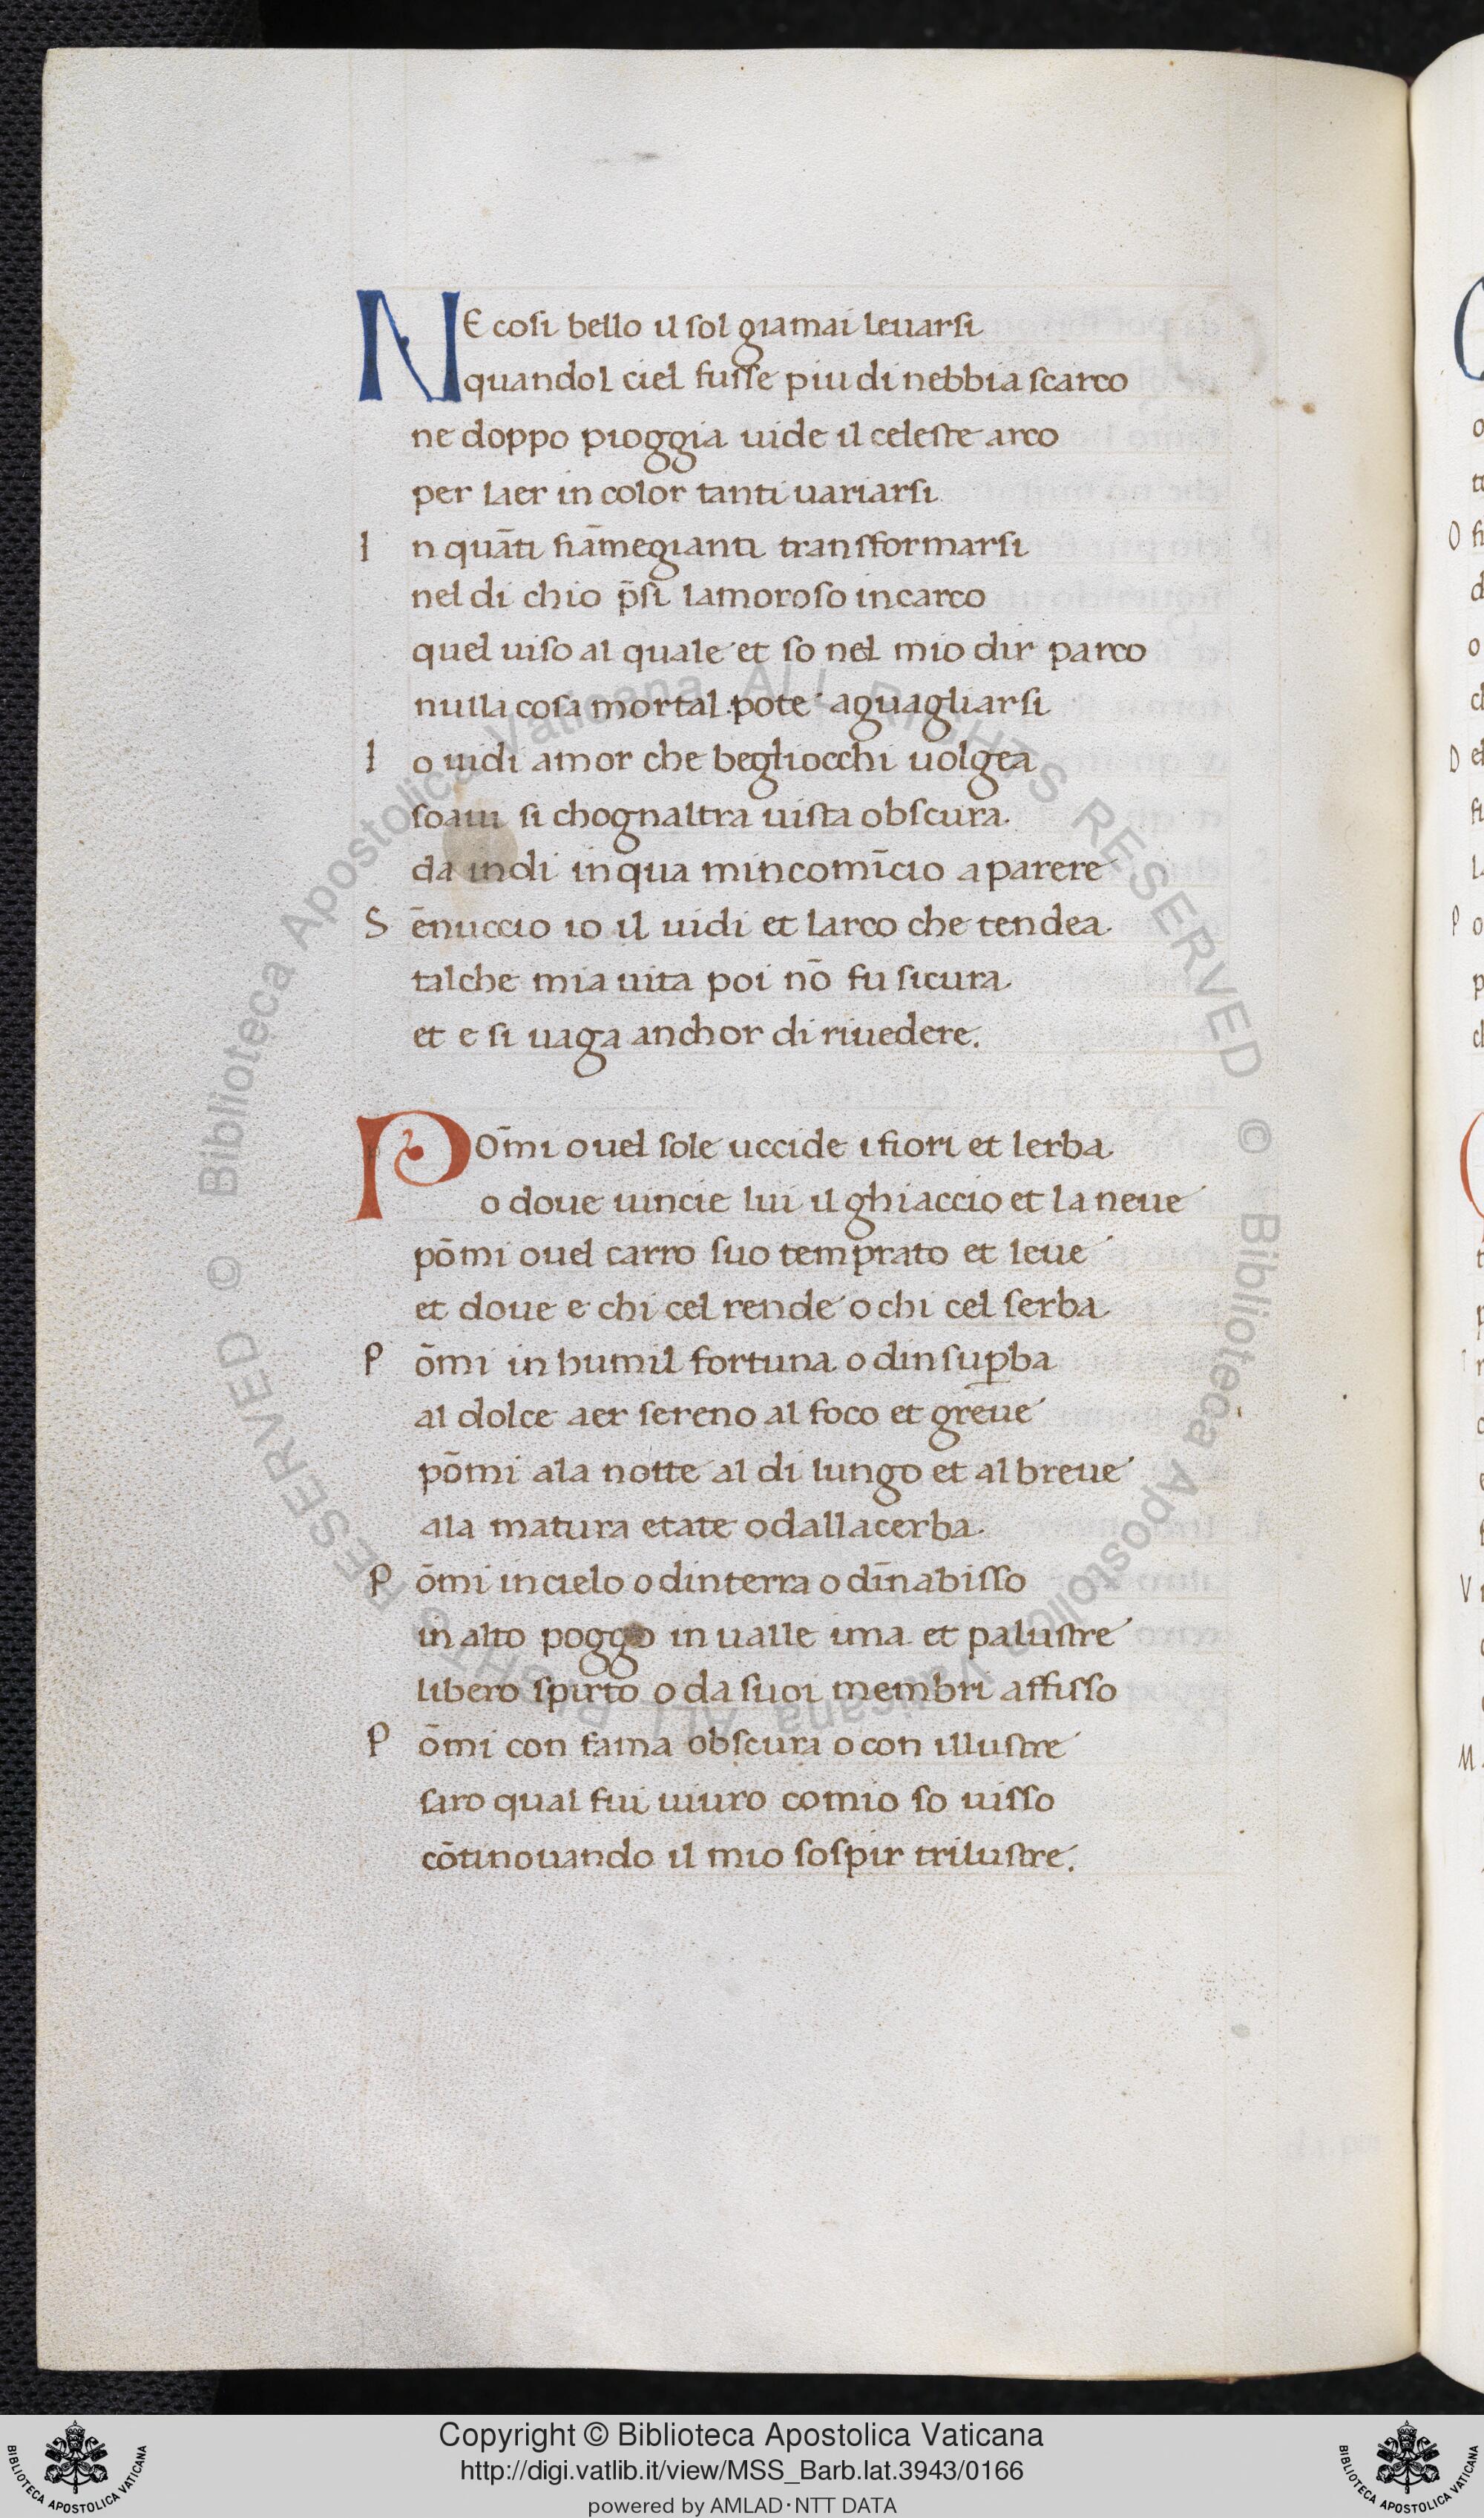 NE cosi bello il sol giamai leuarsi
quandol ciel fusse piu di nebbia scarco
ne doppo pioggia uide il celeste arco
per laer in color tanti uariarsi
I n quāti fiāmegianti transformarsi
nel di chio p̄si lamoroso incarco
quel uiso al quale et so nel mio dir parco
nulla cosa mortal pote aguagliarsi
I o uidi amor che begliocchi uolgea
soaui si chognaltra uista obscura
da indi in qua mincomīcio a parere
S ēnuccio io il uidi et larco che tendea
talche mia uita poi nō fu sicura
et e si uaga anchor di riuedere.
POm̄i ouel sole uccide i fiori et lerba
o doue uincie lui il ghiaccio et la neue
pōmi ouel carro suo temprato et leue
et doue e chi cel rende o chi cel serba
P ōmi in humil fortuna o din suꝑba
al dolce aer sereno al foco et greue
pōmi ala notte al di lungo et al breue
ala matura etate o dallacerba
P ōmi in cielo o dinterra o dīnabisso
in alto poggo in ualle ima et palustre
libero spirto o da suoi membri affisso
P ōmi con fama obscura o con illustre
saro qual fui uiuro comio so uisso
cōtinouando il mio sospir trilustre.
Copyright © Biblioteca Apostolica Vaticana
http://digi.vatlib.it/view/MSS_Barb.lat.3943/0166
powered by AMLAD·NTT DATA
BIBLIOTECA APOSTOLICA VATICANA
BIBLIOTECA APOSTOLICA VATICANA
© Biblioteca Apostolica Vaticana ALL RIGHTS RESERVED
© Biblioteca Apostolica Vaticana ALL RIGHTS RESERVED